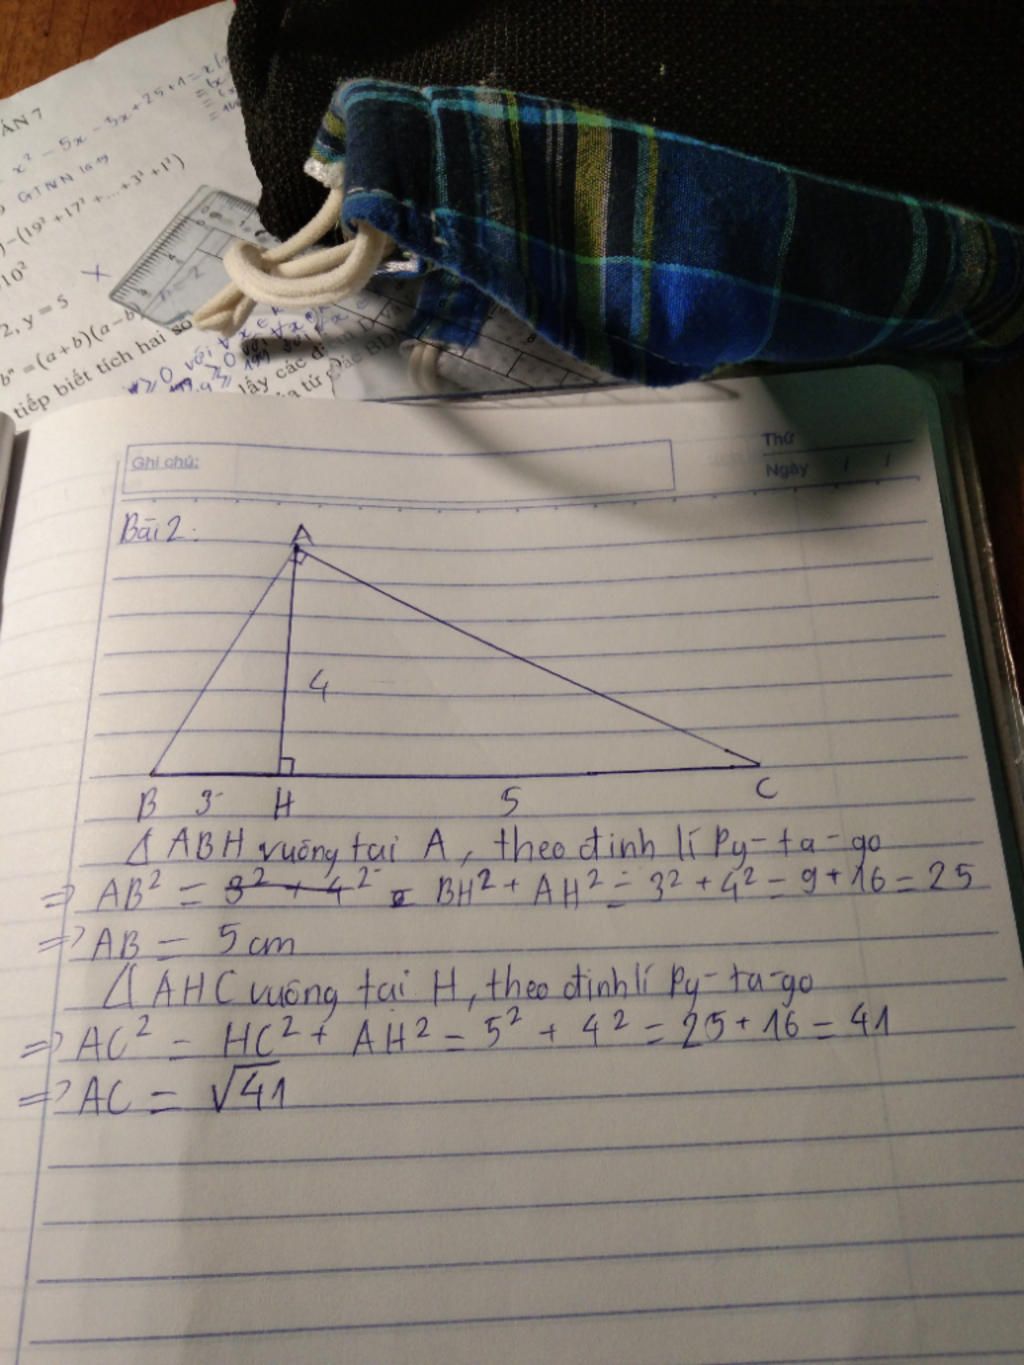 ẦN 7
x² - 5x - 3x + 25 + 1 = x(
GTNN là 19
) - (19² + 17² + ... + 3² + 1²)
10²
2, y = 5
bⁿ = (a + b)(a - b
tiếp biết tích hai số
≥ 0 với ∀x
lấy các điểm D và
Ghi chú:
Thứ
Ngày / /
Bài 2:
A
4
B 3 H 5 C
Δ ABH vuông tại A, theo định lí Py-ta-go
=> AB² = 3² + 4² = BH² + AH² = 3² + 4² = 9 + 16 = 25
=> AB = 5cm
Δ AHC vuông tại H, theo định lí Py-ta-go
=> AC² = HC² + AH² = 5² + 4² = 25 + 16 = 41
=> AC = √41